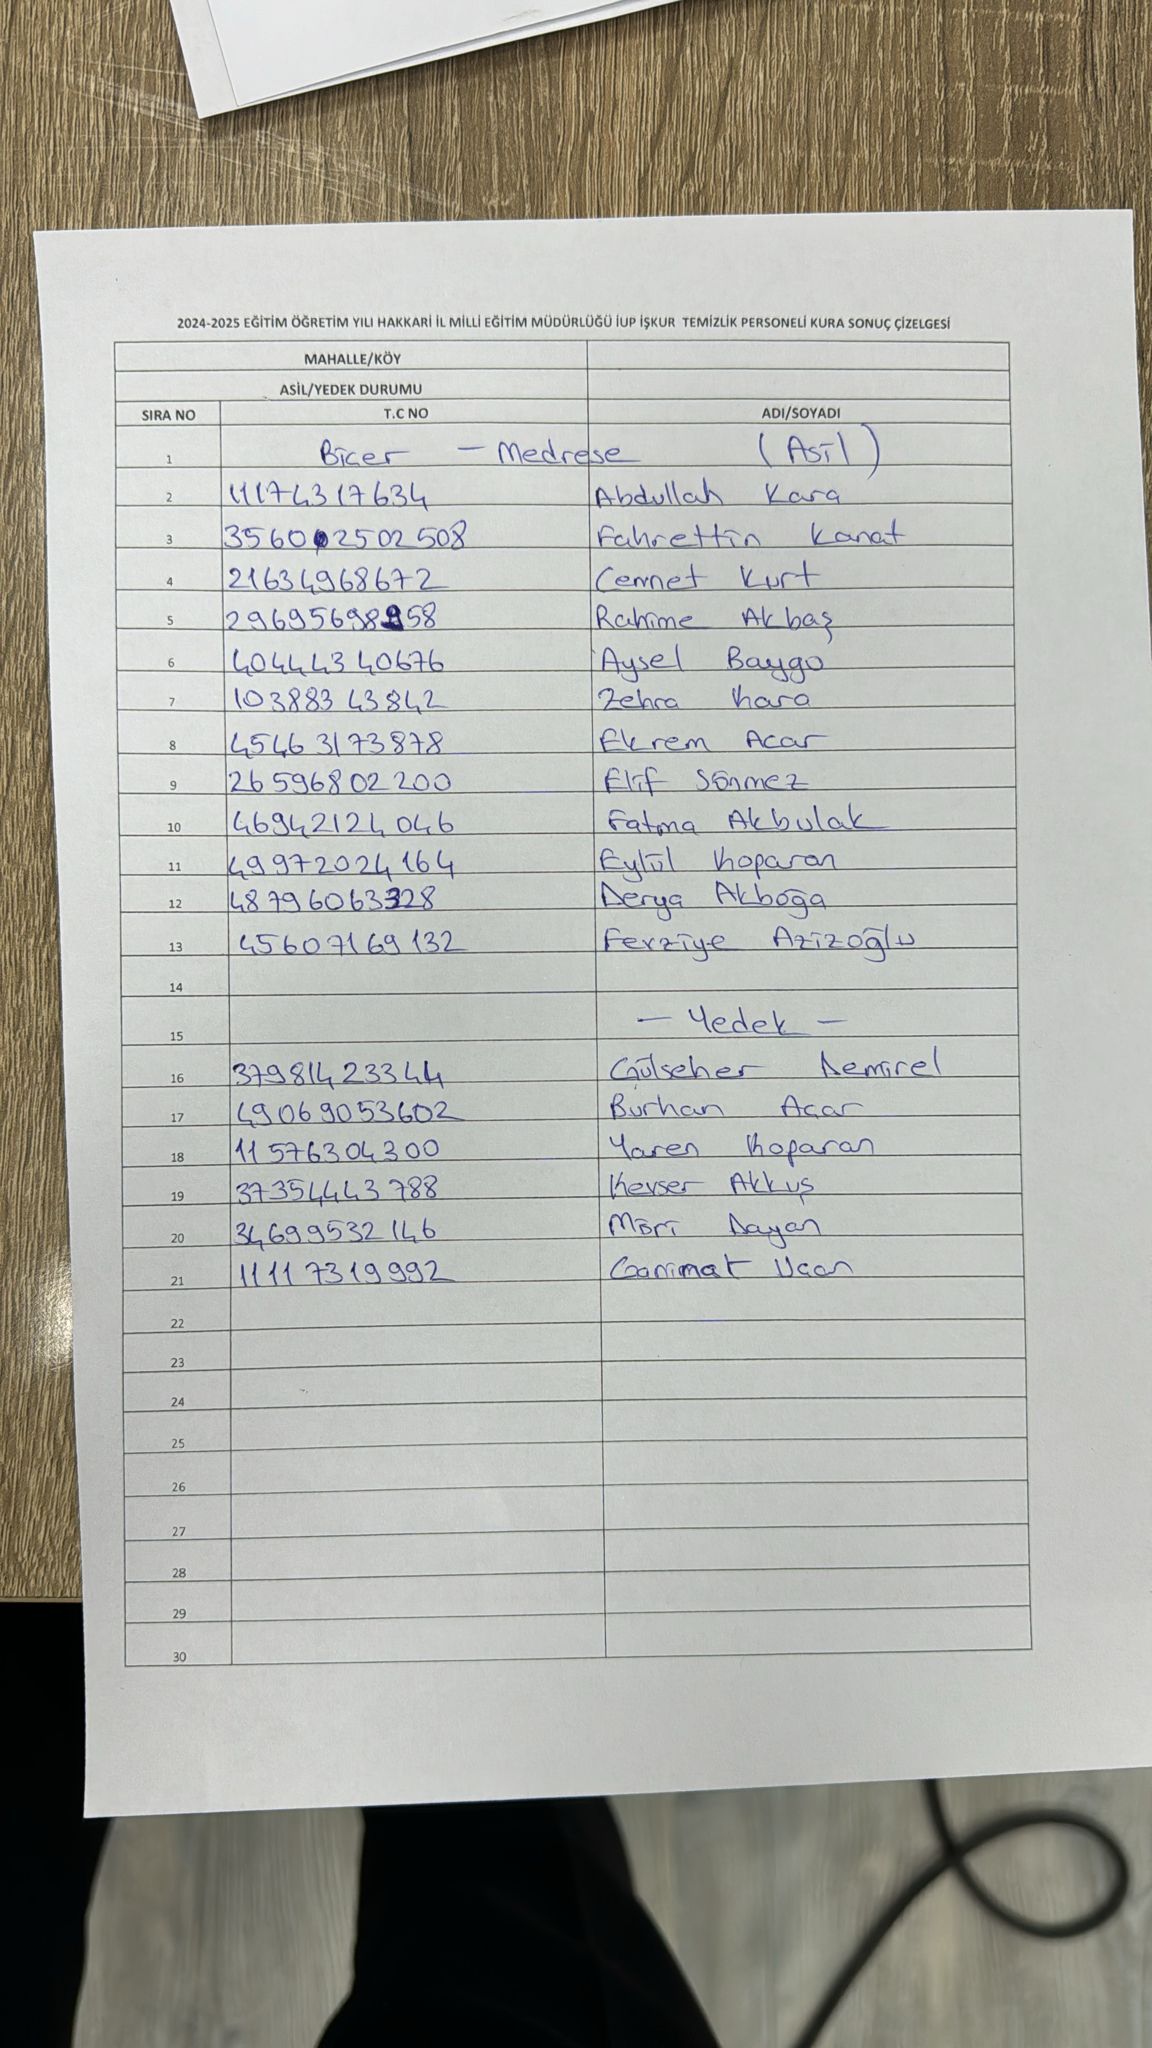 2024-2025 EĞİTİM ÖĞRETİM YILI HAKKARİ İL MİLLİ EĞİTİM MÜDÜRLÜĞÜ İUP İŞKUR TEMİZLİK PERSONELİ KURA SONUÇ ÇİZELGESİ
MAHALLE/KÖY
ASİL/YEDEK DURUMU
SIRA NO T.C NO ADI/SOYADI
1 Biçer - Medrese (Asil)
2 11174317634 Abdullah Kara
3 35602502508 Fahrettin Kanat
4 21634968672 Cennet Kurt
5 29695698958 Rahime Akbaş
6 40444340676 Aysel Baygo
7 10388343842 Zehra Kara
8 45463173878 Ekrem Acar
9 26596802200 Elif Sönmez
10 46942124046 Fatma Akbulak
11 49972024164 Eylül Koparan
12 48796063328 Derya Akboğa
13 45607169132 Fevziye Azizoğlu
14
15 - Yedek -
16 37981423344 Gülseher Demirel
17 49069053602 Burhan Acar
18 11576304300 Yaren Koparan
19 37354443788 Kevser Akkuş
20 34699532146 Möri Dayan
21 11117319992 Ganimat Ucan
22
23
24
25
26
27
28
29
30